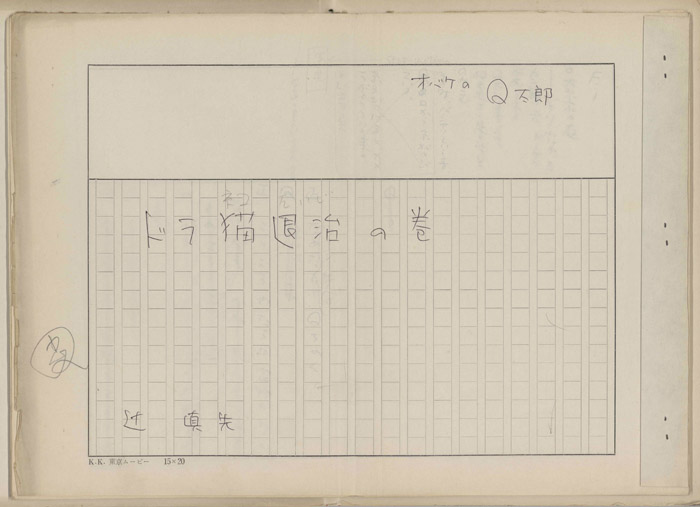 オバケの Q太郎
ネコ
ドラ猫退治の巻
辻 真先
K.K. 東京ムービー 15×20